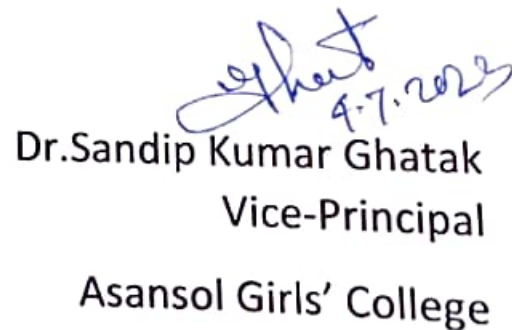 Ghatak
4.7.2023
Dr.Sandip Kumar Ghatak
Vice-Principal
Asansol Girls' College